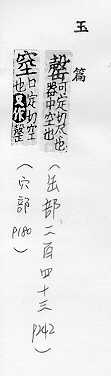 玉篇
罄可定切尺也器中空也
(缶部二百四十三 p242)
口定切空也又作罄
(穴部 p180)